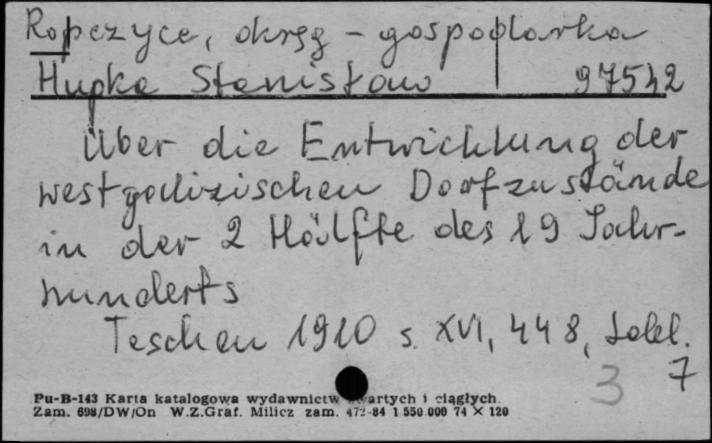 Ropczyce, okręg - gospodarka
Hupka Stanisław 97542
Über die Entwicklung der
westgalizischen Dorfzustände
in der 2 Hälfte des 19 Jahr-
hunderts
Teschen 1910 s. XVI, 448, tabl.
3 7
Pu-B-143 Karta katalogowa wydawnictw zwartych i ciągłych.
Zam. 698/DW/On W.Z.Graf. Milicz zam. 472-84 1 550 000 74 × 120